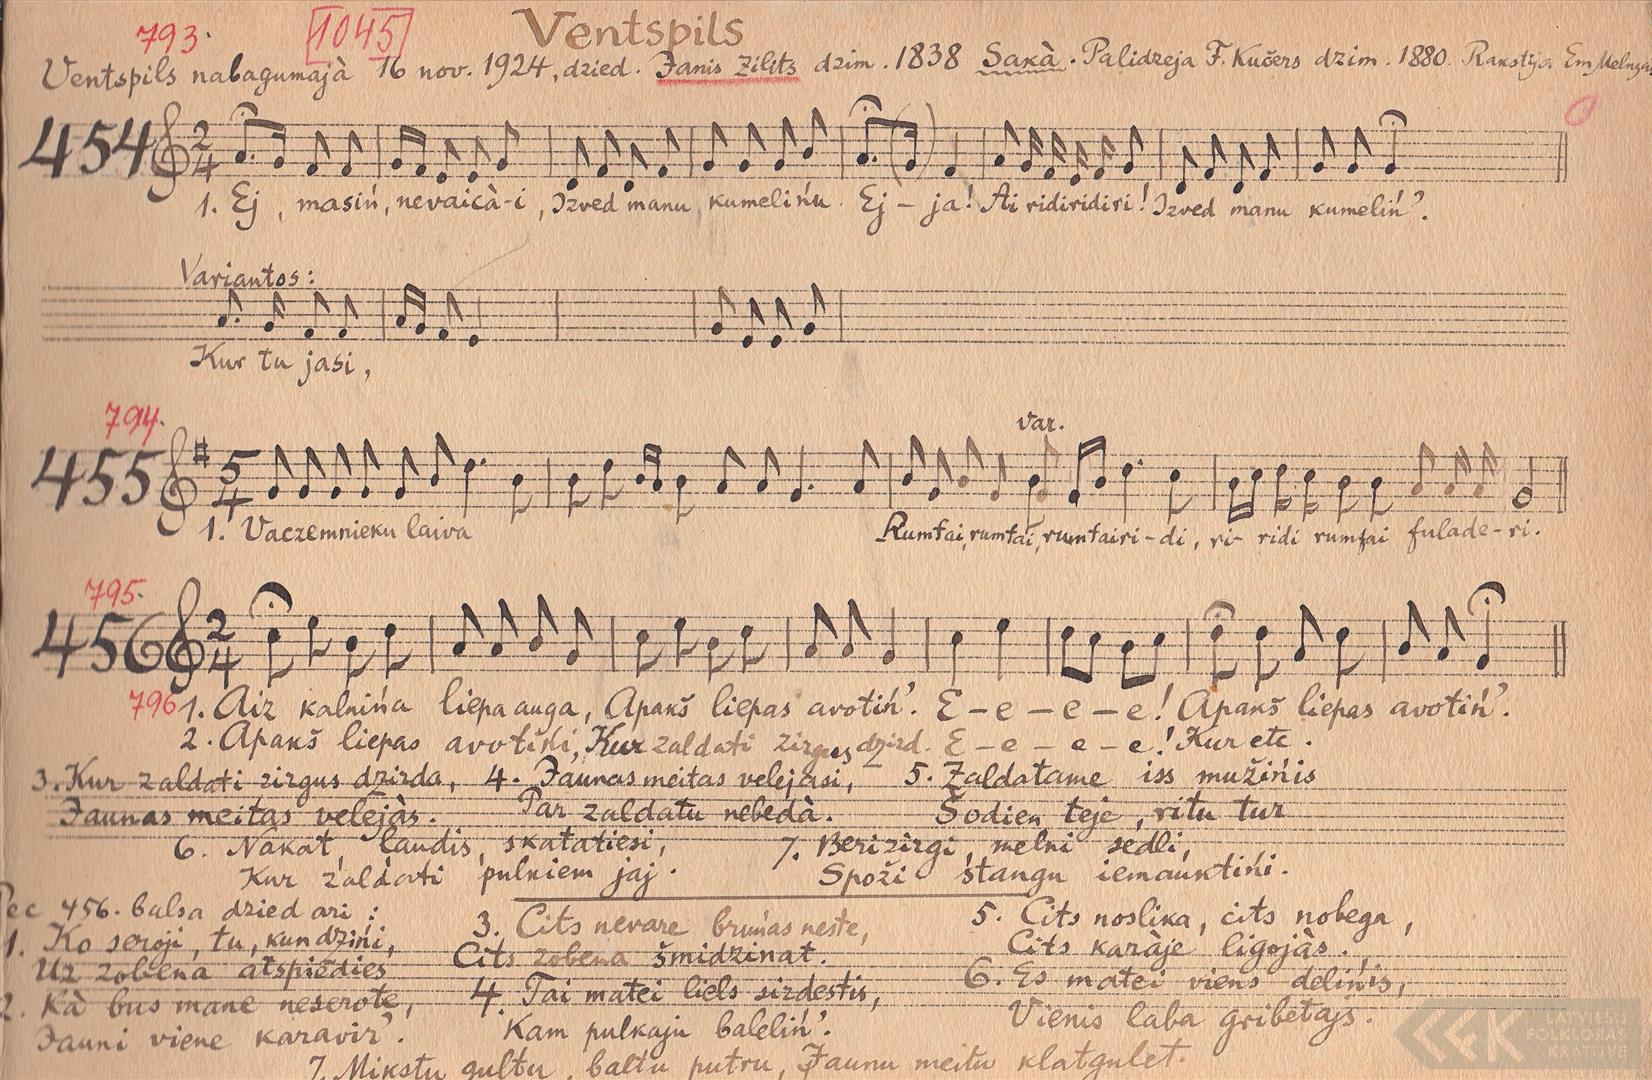 793.
1045
Ventspils
Ventspils nabagumajà 16 nov. 1924, dzied. Janis Zilits dzim. 1838 Sakà. Palidzeja F. Kučers dzim. 1880. Rakstija Em
454
1. Ej, masiń, nevaicà-i, Izved manu kumelińu. Ej – ja! Ai ridiridiri! Izved manu kumeliń'.
Variantos:
Kur tu jasi,
794.
var.
455
1. Vaczemnieku laiva Rumtai, rumtai, rumtairi-di, ri- ridi rumtai fulade-ri.
795.
456
796
1. Aiz kalnińa liepa auga, Apakš liepas avotiń'. E – e – e – e! Apakš liepas avotiń'.
2. Apakš liepas avotińi, Kur zaldati zirgus dzird. E – e – e – e! Kur etc.
3. Kur zaldati zirgus dzirda, 4. Jaunas meitas velejasi, 5. Zaldatame iss mužińis
Jaunas meitas velejàs. Par zaldatu nebedà. Šodien teje, ritu tur
6. Nakat, laudis, skatatiesi, 7. Beri zirgi, melni sedli,
Kur zaldati pulkiem jaj. Spoži stangu iemauktińi.
Pec 456. balsa dzied ari:
1. Ko seroji, tu, kundzińi,
Uz zobena atspiedies
2. Kà bus mane neserote,
Jauni viene karavir'.
3. Cits nevare bruńas neste,
Cits zobena šmidzinat.
4. Tai matei liels sirdestis,
Kam pulkaju baleliń'.
5. Cits noslika, cits nobega,
Cits karàje ligojàs.
6. Es matei viens delińis,
Vienis laba gribetajs.
7. Mikstu gultu, baltu putru, Jaunu meitu klatgulet.
LATVIEŠU
FOLKLORAS
KRĀTUVE